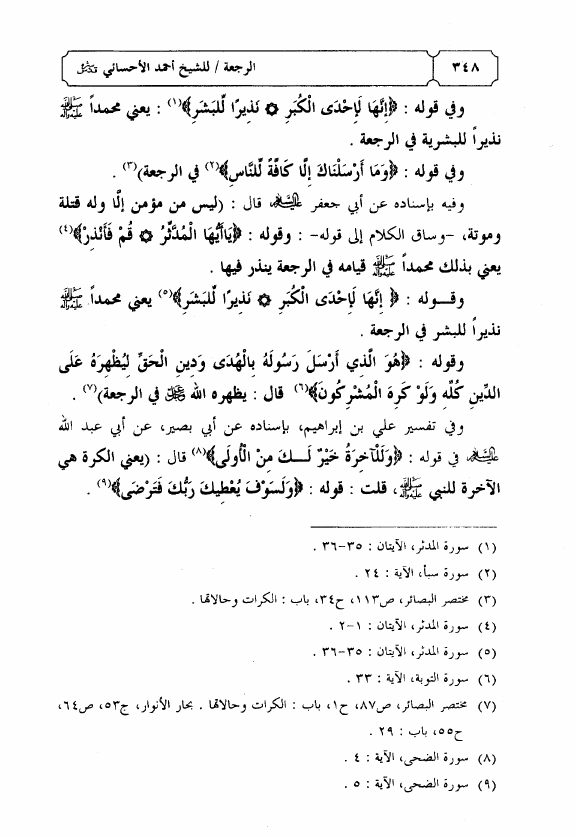 ٣٤٨ الرجعة / للشيخ أحمد الأحسائي قدس سره
وفي قوله : ﴿إِنَّهَا لَإِحْدَى الْكُبَرِ ۞ نَذِيرًا لِّلْبَشَرِ﴾(١) : يعني محمداً ﷺ
نذيراً للبشرية في الرجعة .
وفي قوله : ﴿وَمَا أَرْسَلْنَاكَ إِلَّا كَافَّةً لِّلنَّاسِ﴾(٢) في الرجعة)(٣) .
وفيه بإسناده عن أبي جعفر عليه السلام قال : (ليس من مؤمن إلّا وله قتلة
وموتة، -وساق الكلام إلى قوله- : وقوله : ﴿يَاأَيُّهَا الْمُدَّثِّرُ ۞ قُمْ فَأَنْذِرْ﴾(٤)
يعني بذلك محمداً ﷺ قيامه في الرجعة ينذر فيها .
وقـــوله : ﴿ إِنَّهَا لَإِحْدَى الْكُبَرِ ۞ نَذِيرًا لِّلْبَشَرِ﴾(٥) يعني محمداً ﷺ
نذيراً للبشر في الرجعة .
وقوله : ﴿هُوَ الَّذِي أَرْسَلَ رَسُولَهُ بِالْهُدَى وَدِينِ الْحَقِّ لِيُظْهِرَهُ عَلَى
الدِّينِ كُلِّهِ وَلَوْ كَرِهَ الْمُشْرِكُونَ﴾(٦) قال : يظهره الله ﷻ في الرجعة)(٧) .
وفي تفسير علي بن إبراهيم، بإسناده عن أبي بصير، عن أبي عبد الله
عليه السلام في قوله : ﴿وَلَلْآخِرَةُ خَيْرٌ لَـــكَ مِنَ الْأُولَى﴾(٨) قال : (يعني الكرة هي
الآخرة للنبي ﷺ، قلت : قوله : ﴿وَلَسَوْفَ يُعْطِيكَ رَبُّكَ فَتَرْضَى﴾(٩) .
(١) سورة المدثر، الآيتان : ٣٥-٣٦ .
(٢) سورة سبأ، الآية : ٢٤ .
(٣) مختصر البصائر، ص١١٣، ح٣٤، باب : الكرات وحالاتها .
(٤) سورة المدثر، الآيتان : ١-٢ .
(٥) سورة المدثر، الآيتان : ٣٥-٣٦ .
(٦) سورة التوبة، الآية : ٣٣ .
(٧) مختصر البصائر، ص٨٧، ح١، باب : الكرات وحالاتها . بحار الأنوار، ج٥٣، ص٦٤،
ح٥٥، باب : ٢٩ .
(٨) سورة الضحى، الآية : ٤ .
(٩) سورة الضحى، الآية : ٥ .